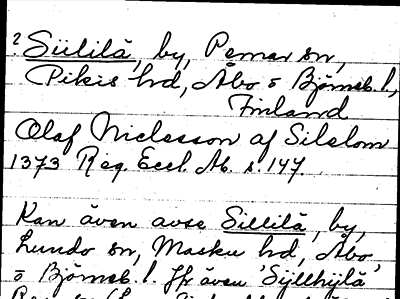 2 Siililä, by, Pemar sn,
Pikis hd, Åbo o Björneb. l,
Finland
Olaf Niclesson af Silalom
1373 Reg. Eccl. Ab. s. 147.
Kan även avse Sillilä, by,
Lundo sn, Masku hd, Åbo
o Björneb. l. Jfr även 'Syllhylä'